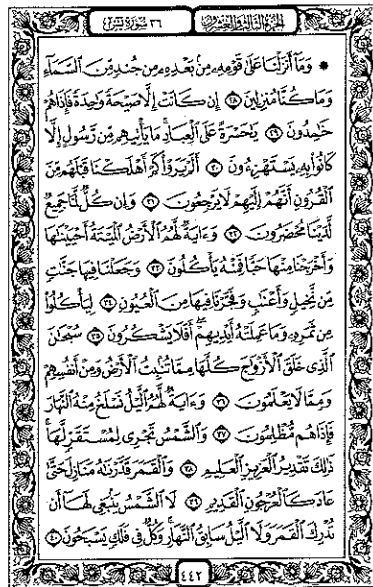 الجزء الثالث والعشرون ٣٦ سورة يس
۞ وَمَا أَنزَلْنَا عَلَىٰ قَوْمِهِۦ مِنۢ بَعْدِهِۦ مِن جُندٍ مِّنَ ٱلسَّمَآءِ
وَمَا كُنَّا مُنزِلِينَ ٢٨ إِن كَانَتْ إِلَّا صَيْحَةً وَٰحِدَةً فَإِذَا هُمْ
خَٰمِدُونَ ٢٩ يَٰحَسْرَةً عَلَى ٱلْعِبَادِ مَا يَأْتِيهِم مِّن رَّسُولٍ إِلَّا
كَانُوا۟ بِهِۦ يَسْتَهْزِءُونَ ٣٠ أَلَمْ يَرَوْا۟ كَمْ أَهْلَكْنَا قَبْلَهُم مِّنَ
ٱلْقُرُونِ أَنَّهُمْ إِلَيْهِمْ لَا يَرْجِعُونَ ٣١ وَإِن كُلٌّ لَّمَّا جَمِيعٌ
لَّدَيْنَا مُحْضَرُونَ ٣٢ وَءَايَةٌ لَّهُمُ ٱلْأَرْضُ ٱلْمَيْتَةُ أَحْيَيْنَٰهَا
وَأَخْرَجْنَا مِنْهَا حَبًّا فَمِنْهُ يَأْكُلُونَ ٣٣ وَجَعَلْنَا فِيهَا جَنَّٰتٍ
مِّن نَّخِيلٍ وَأَعْنَٰبٍ وَفَجَّرْنَا فِيهَا مِنَ ٱلْعُيُونِ ٣٤ لِيَأْكُلُوا۟
مِن ثَمَرِهِۦ وَمَا عَمِلَتْهُ أَيْدِيهِمْ أَفَلَا يَشْكُرُونَ ٣٥ سُبْحَٰنَ
ٱلَّذِى خَلَقَ ٱلْأَزْوَٰجَ كُلَّهَا مِمَّا تُنۢبِتُ ٱلْأَرْضُ وَمِنْ أَنفُسِهِمْ
وَمِمَّا لَا يَعْلَمُونَ ٣٦ وَءَايَةٌ لَّهُمُ ٱلَّيْلُ نَسْلَخُ مِنْهُ ٱلنَّهَارَ
فَإِذَا هُم مُّظْلِمُونَ ٣٧ وَٱلشَّمْسُ تَجْرِى لِمُسْتَقَرٍّ لَّهَا
ذَٰلِكَ تَقْدِيرُ ٱلْعَزِيزِ ٱلْعَلِيمِ ٣٨ وَٱلْقَمَرَ قَدَّرْنَٰهُ مَنَازِلَ حَتَّىٰ
عَادَ كَٱلْعُرْجُونِ ٱلْقَدِيمِ ٣٩ لَا ٱلشَّمْسُ يَنۢبَغِى لَهَآ أَن
تُدْرِكَ ٱلْقَمَرَ وَلَا ٱلَّيْلُ سَابِقُ ٱلنَّهَارِ وَكُلٌّ فِى فَلَكٍ يَسْبَحُونَ ٤٠
٤٤٢